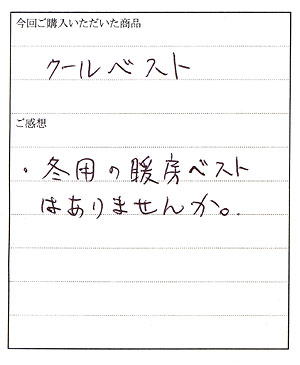 今回ご購入いただいた商品
クールベスト
ご感想
・冬用の暖房ベスト
はありませんか。